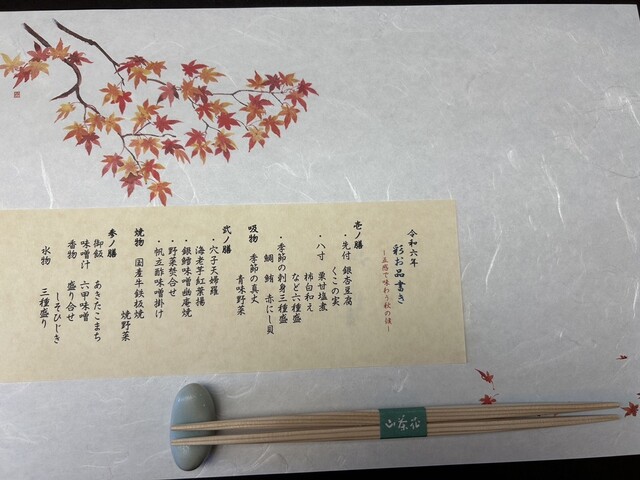 令和六年
彩お品書き
~五感で味わう秋の味~
壱ノ膳
・先付 銀杏豆腐
くこの実
・八寸 栗甘塩煮
柿白和え
など六種盛
・季節の刺身三種盛
鯛 鮪 赤にし貝
吸物 季節の真丈
青味野菜
弐ノ膳
・穴子天婦羅
海老芋紅葉揚
・銀鱈味噌幽庵焼
・野菜焚合せ
・帆立酢味噌掛け
焼物 国産牛鉄板焼
焼野菜
参ノ膳
御飯 あきたこまち
味噌汁 六甲味噌
香物 盛り合せ
しそひじき
水物 三種盛り
山茶花